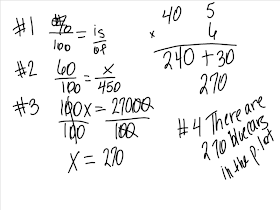 #1 %/100 = is/of
#2 60/100 = x/450
#3 100x/100 = 27000/100
x = 270
40 5
x 6
240 + 30
270
#4 There are
270 blue cars
in the p. lot